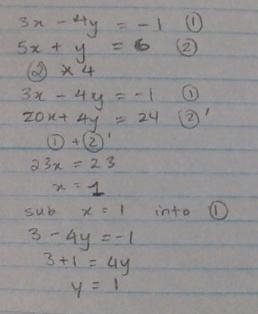 3x - 4y = -1 ①
5x + y = 6 ②
② × 4
3x - 4y = -1 ①
20x + 4y = 24 ②'
① + ②'
23x = 23
x = 1
sub x = 1 into ①
3 - 4y = -1
3 + 1 = 4y
y = 1